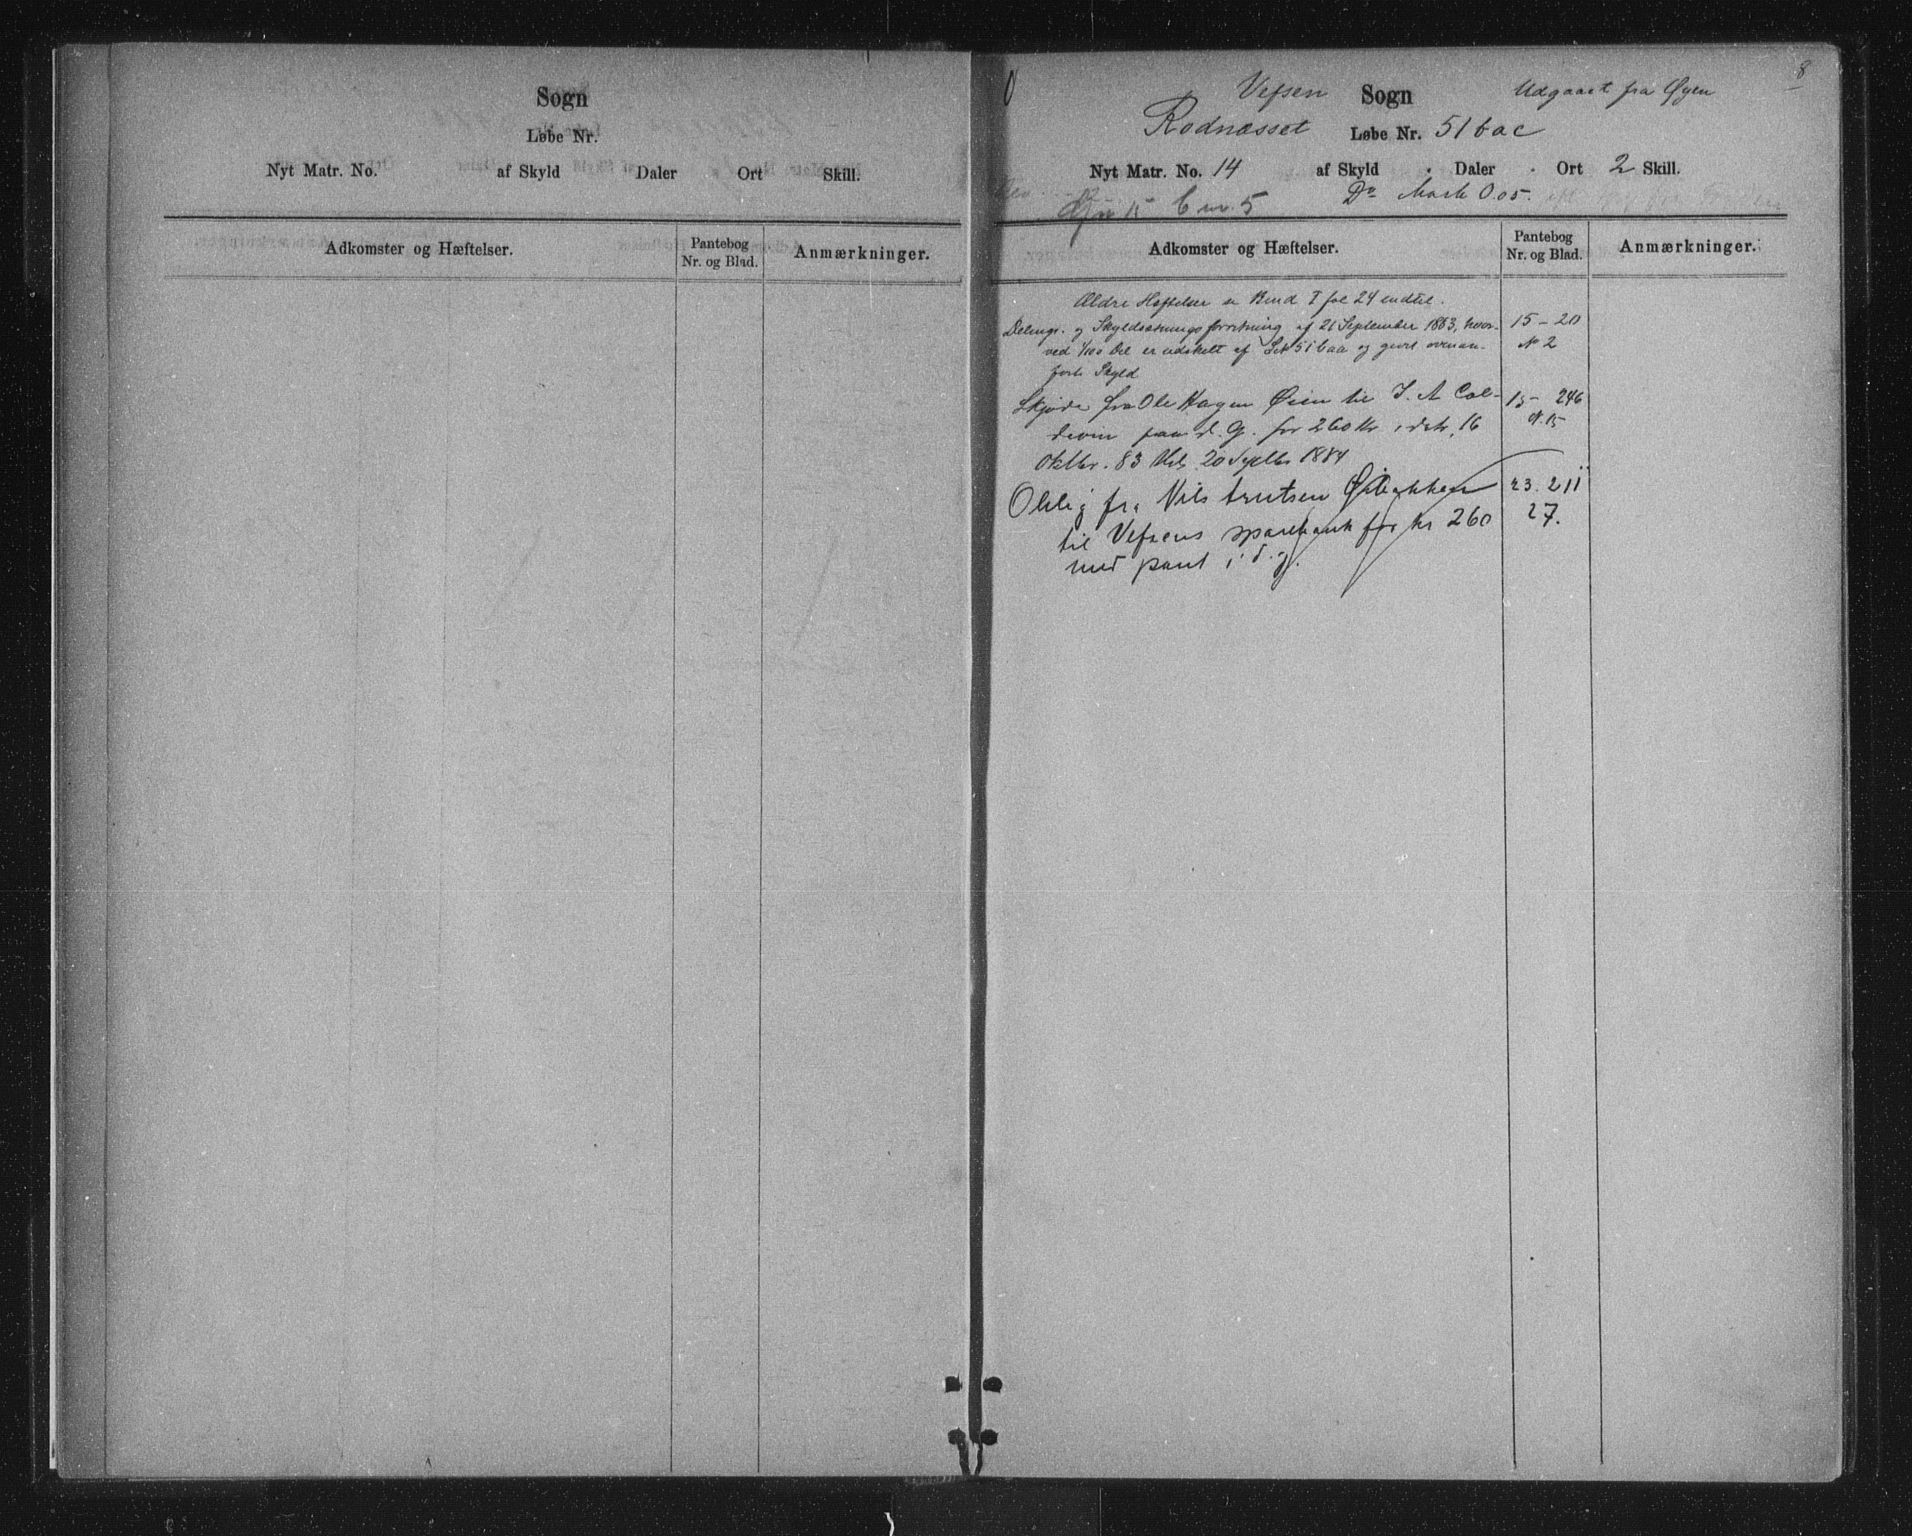 Sogn
Løbe Nr.
Nyt Matr. No. af Skyld Daler Ort Skill.
Adkomster og Hæftelser. Pantebog Nr. og Blad. Anmærkninger.
8
Vefsen Sogn Udgaaet fra Øyen
Rodnæsset Løbe Nr. 51 bac
Nyt Matr. No. 14 af Skyld . Daler . Ort 2 Skill.
15 b nr. 5 Do Mark 0.05.
Adkomster og Hæftelser. Pantebog Nr. og Blad. Anmærkninger.
Ældre Hæftelser se Bind I fol 24 indtil.
Delings. og Skyldsætningsforretning af 21 September 1883, hvor- 15 – 20
ved 1/100 Del er udskilt af 51 baa og givet ovenan- N 2
førte Skyld
Skjøde fra Ole Hagen Øien til J. A Col- 15 – 246
devin paa d. G. for 260 Kr, datr. 16 N. 15
Oktbr. 83 20 1884
Oblig fra Nils Knutsen Øibakken 23. 211
til Vefsens sparebank for kr 260 27.
med pant i d. g.